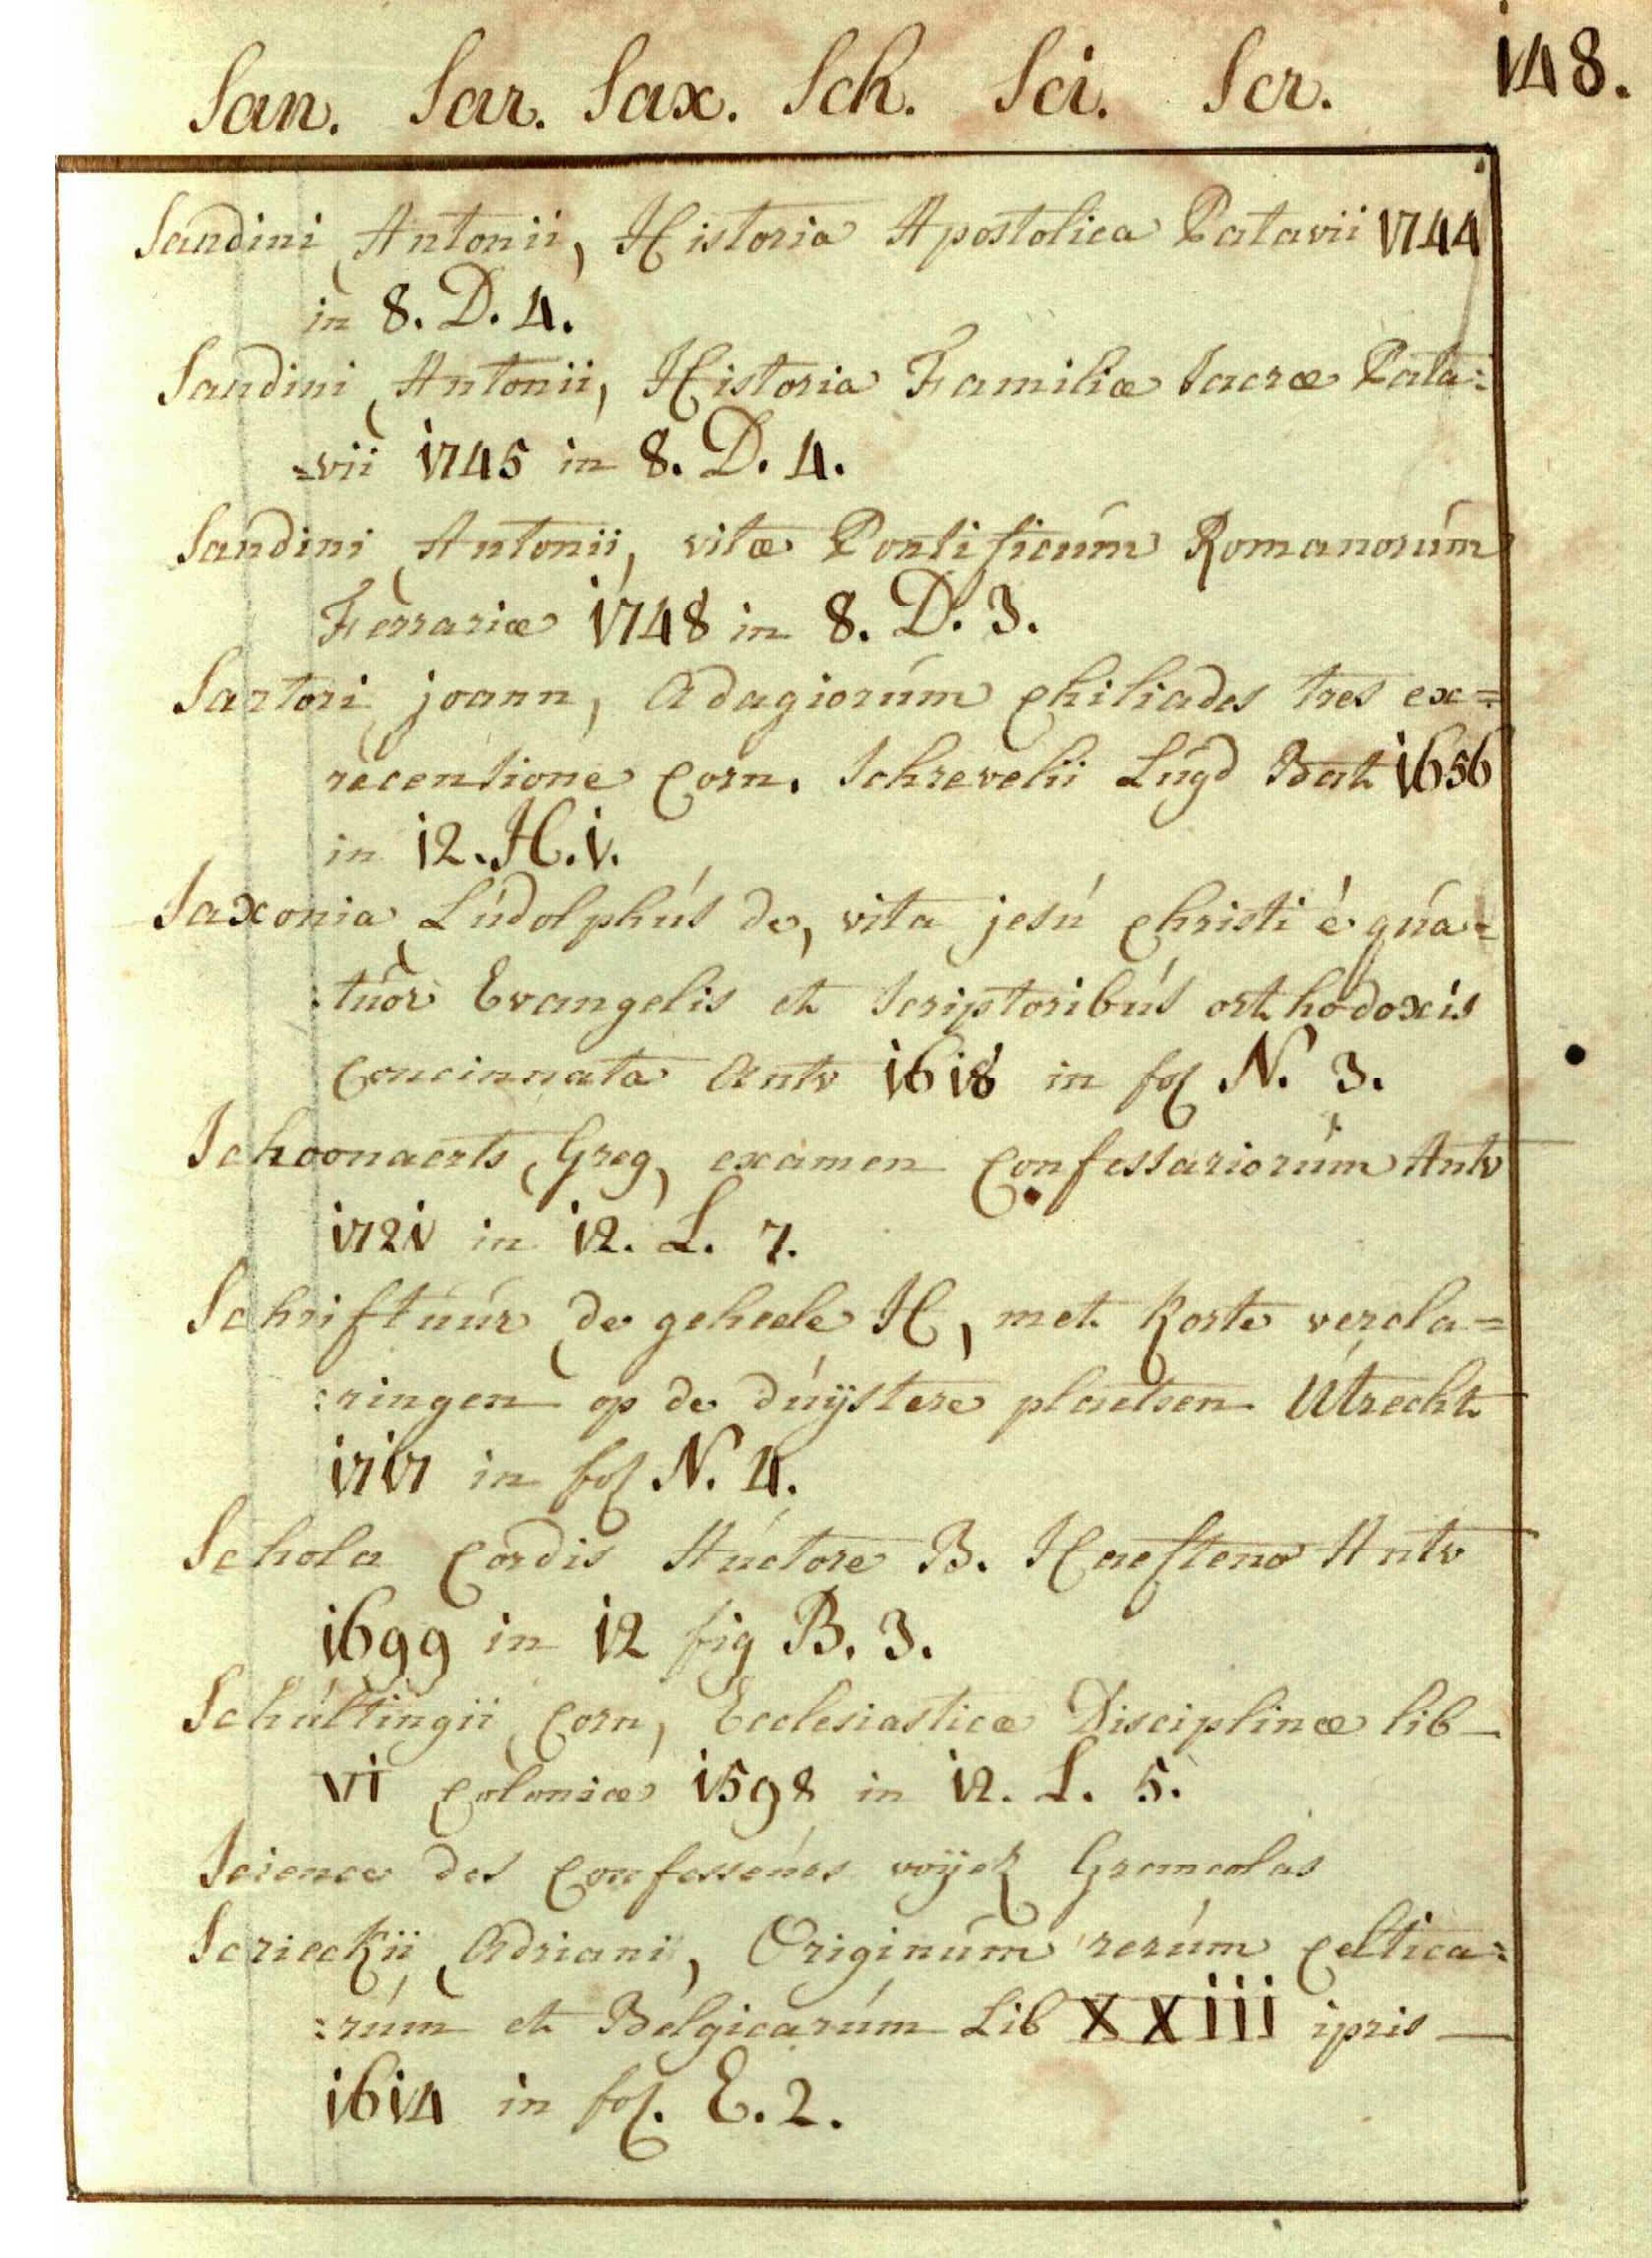 San. Sar. Sax. Sch. Sci. Scr. 148.
Sandini (Antonii) Historia Apostolica Patavii 1744
in 8. D. 4.
Sandini (Antonii) Historia Familiæ Sacræ Pata=
=vii 1745 in 8. D. 4.
Sandini (Antonii) vitæ Pontificúm Romanorúm
Ferrariæ 1748 in 8. D. 3.
Sartori (joann) Adagiorúm chiliades tres ex=
recensione Corn. Schrevelii Lúgd Bat 1656
in 12. H. 1.
Saxonia (Lúdolphús de) vita jesú Christi è qúa=
:túor Evangelis et Scriptoribús orthodoxis
Concinnata Antv 1618 in fol N. 3.
Schoonaerts (Greg) examen Confessariorúm Antv
1721 in 12. L. 7.
Schriftúúr (de geheele H) met korte vercla=
:ringen op de dúÿstere plaetsen Útrecht
1717 in fol N. 4.
Schola Cordis Aúctore B. Haefteno Antv
1699 in 12 fig B. 3.
Schúltingii (Corn) Ecclesiasticæ Disciplinæ lib
VI Coloniæ 1598 in 12. L. 5.
Science des Confesseúrs voÿez
Scrieckii (Adriani) Originúm rerúm Celtica=
:rúm et Belgicarúm Lib XXIII ipris
1614 in fol. E. 2.